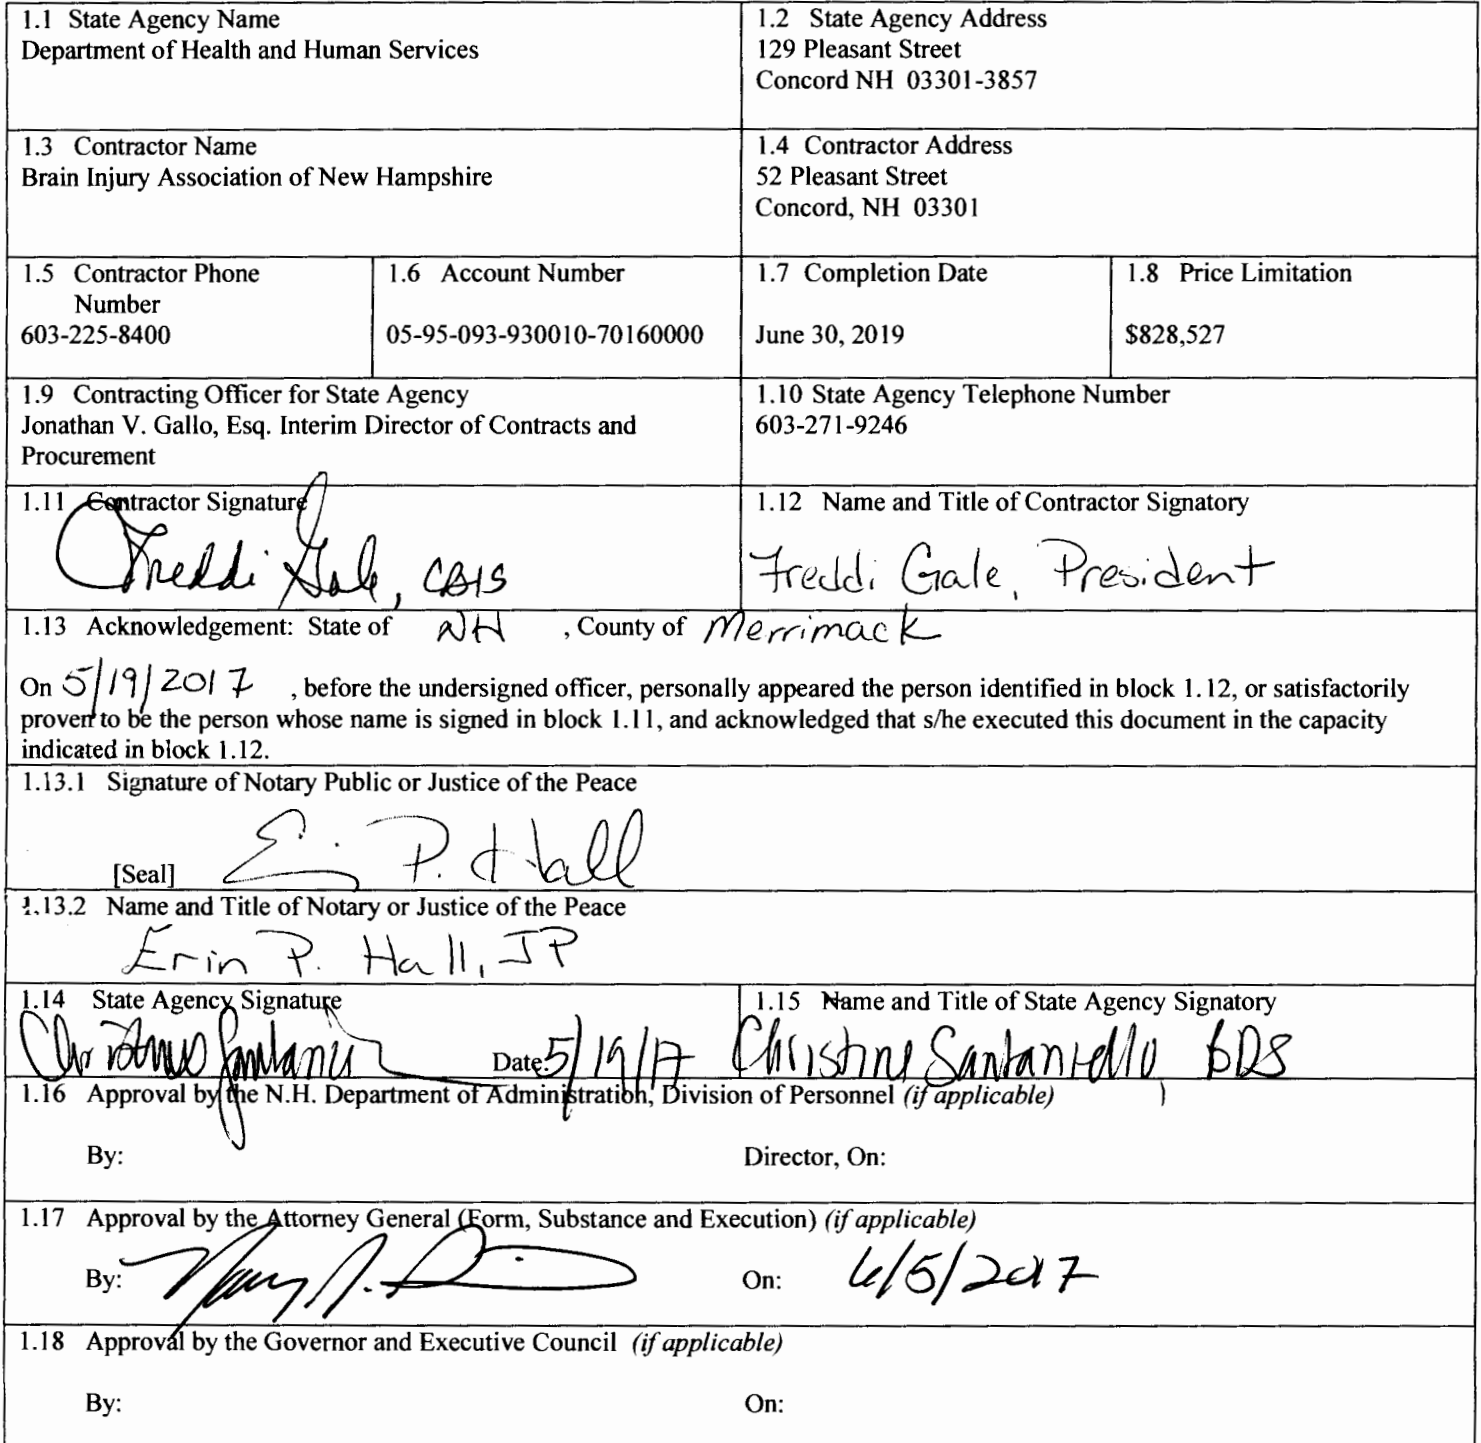 1.1 State Agency Name
Department of Health and Human Services
1.2 State Agency Address
129 Pleasant Street
Concord NH 03301-3857
1.3 Contractor Name
Brain Injury Association of New Hampshire
1.4 Contractor Address
52 Pleasant Street
Concord, NH 03301
1.5 Contractor Phone
Number
603-225-8400
1.6 Account Number
05-95-093-930010-70160000
1.7 Completion Date
June 30, 2019
1.8 Price Limitation
$828,527
1.9 Contracting Officer for State Agency
Jonathan V. Gallo, Esq. Interim Director of Contracts and
Procurement
1.10 State Agency Telephone Number
603-271-9246
1.11 Contractor Signature
Freddi Gale, CBIS
1.12 Name and Title of Contractor Signatory
Freddi Gale, President
1.13 Acknowledgement: State of NH , County of Merrimack
On 5/19/2017 , before the undersigned officer, personally appeared the person identified in block 1.12, or satisfactorily
proven to be the person whose name is signed in block 1.11, and acknowledged that s/he executed this document in the capacity
indicated in block 1.12.
1.13.1 Signature of Notary Public or Justice of the Peace
[Seal] Erin P. Hall
1.13.2 Name and Title of Notary or Justice of the Peace
Erin P. Hall, JP
1.14 State Agency Signature
Date: 5/19/17
1.15 Name and Title of State Agency Signatory
Christine Santaniello, BDS
1.16 Approval by the N.H. Department of Administration, Division of Personnel (if applicable)
By:
Director, On:
1.17 Approval by the Attorney General (Form, Substance and Execution) (if applicable)
By:
On: 6/5/2017
1.18 Approval by the Governor and Executive Council (if applicable)
By:
On: